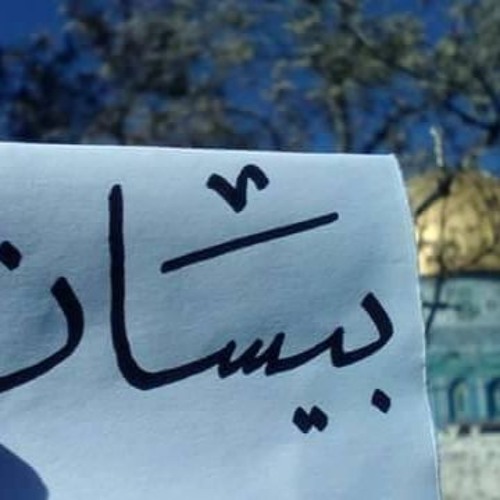 بيسان